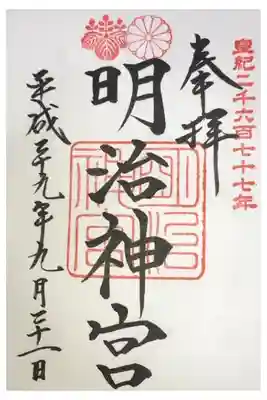 皇紀二千六百七十七年
奉拝
明治神宮
明治
神宮
平成二十九年九月二十一日